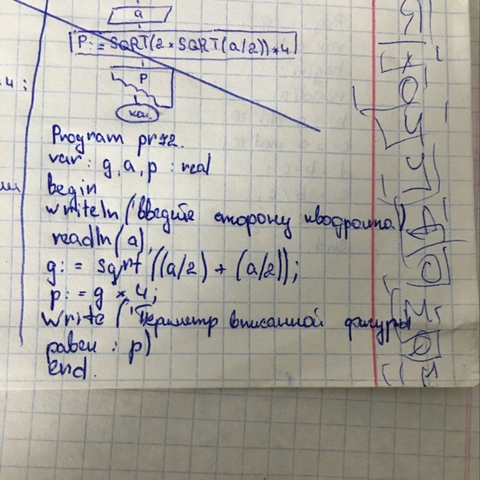 a
P:=SQRT(2*SQRT(a/2))*4
P
кон.
Program pr72.
var: g, a, p : real
begin
writeln ('введите сторону квадрата')
readln (a),
g: = sqrt ((a/2) + (a/2);
p: = g * 4;
write ('Периметр вписанной фигуры
равен : p)
end.